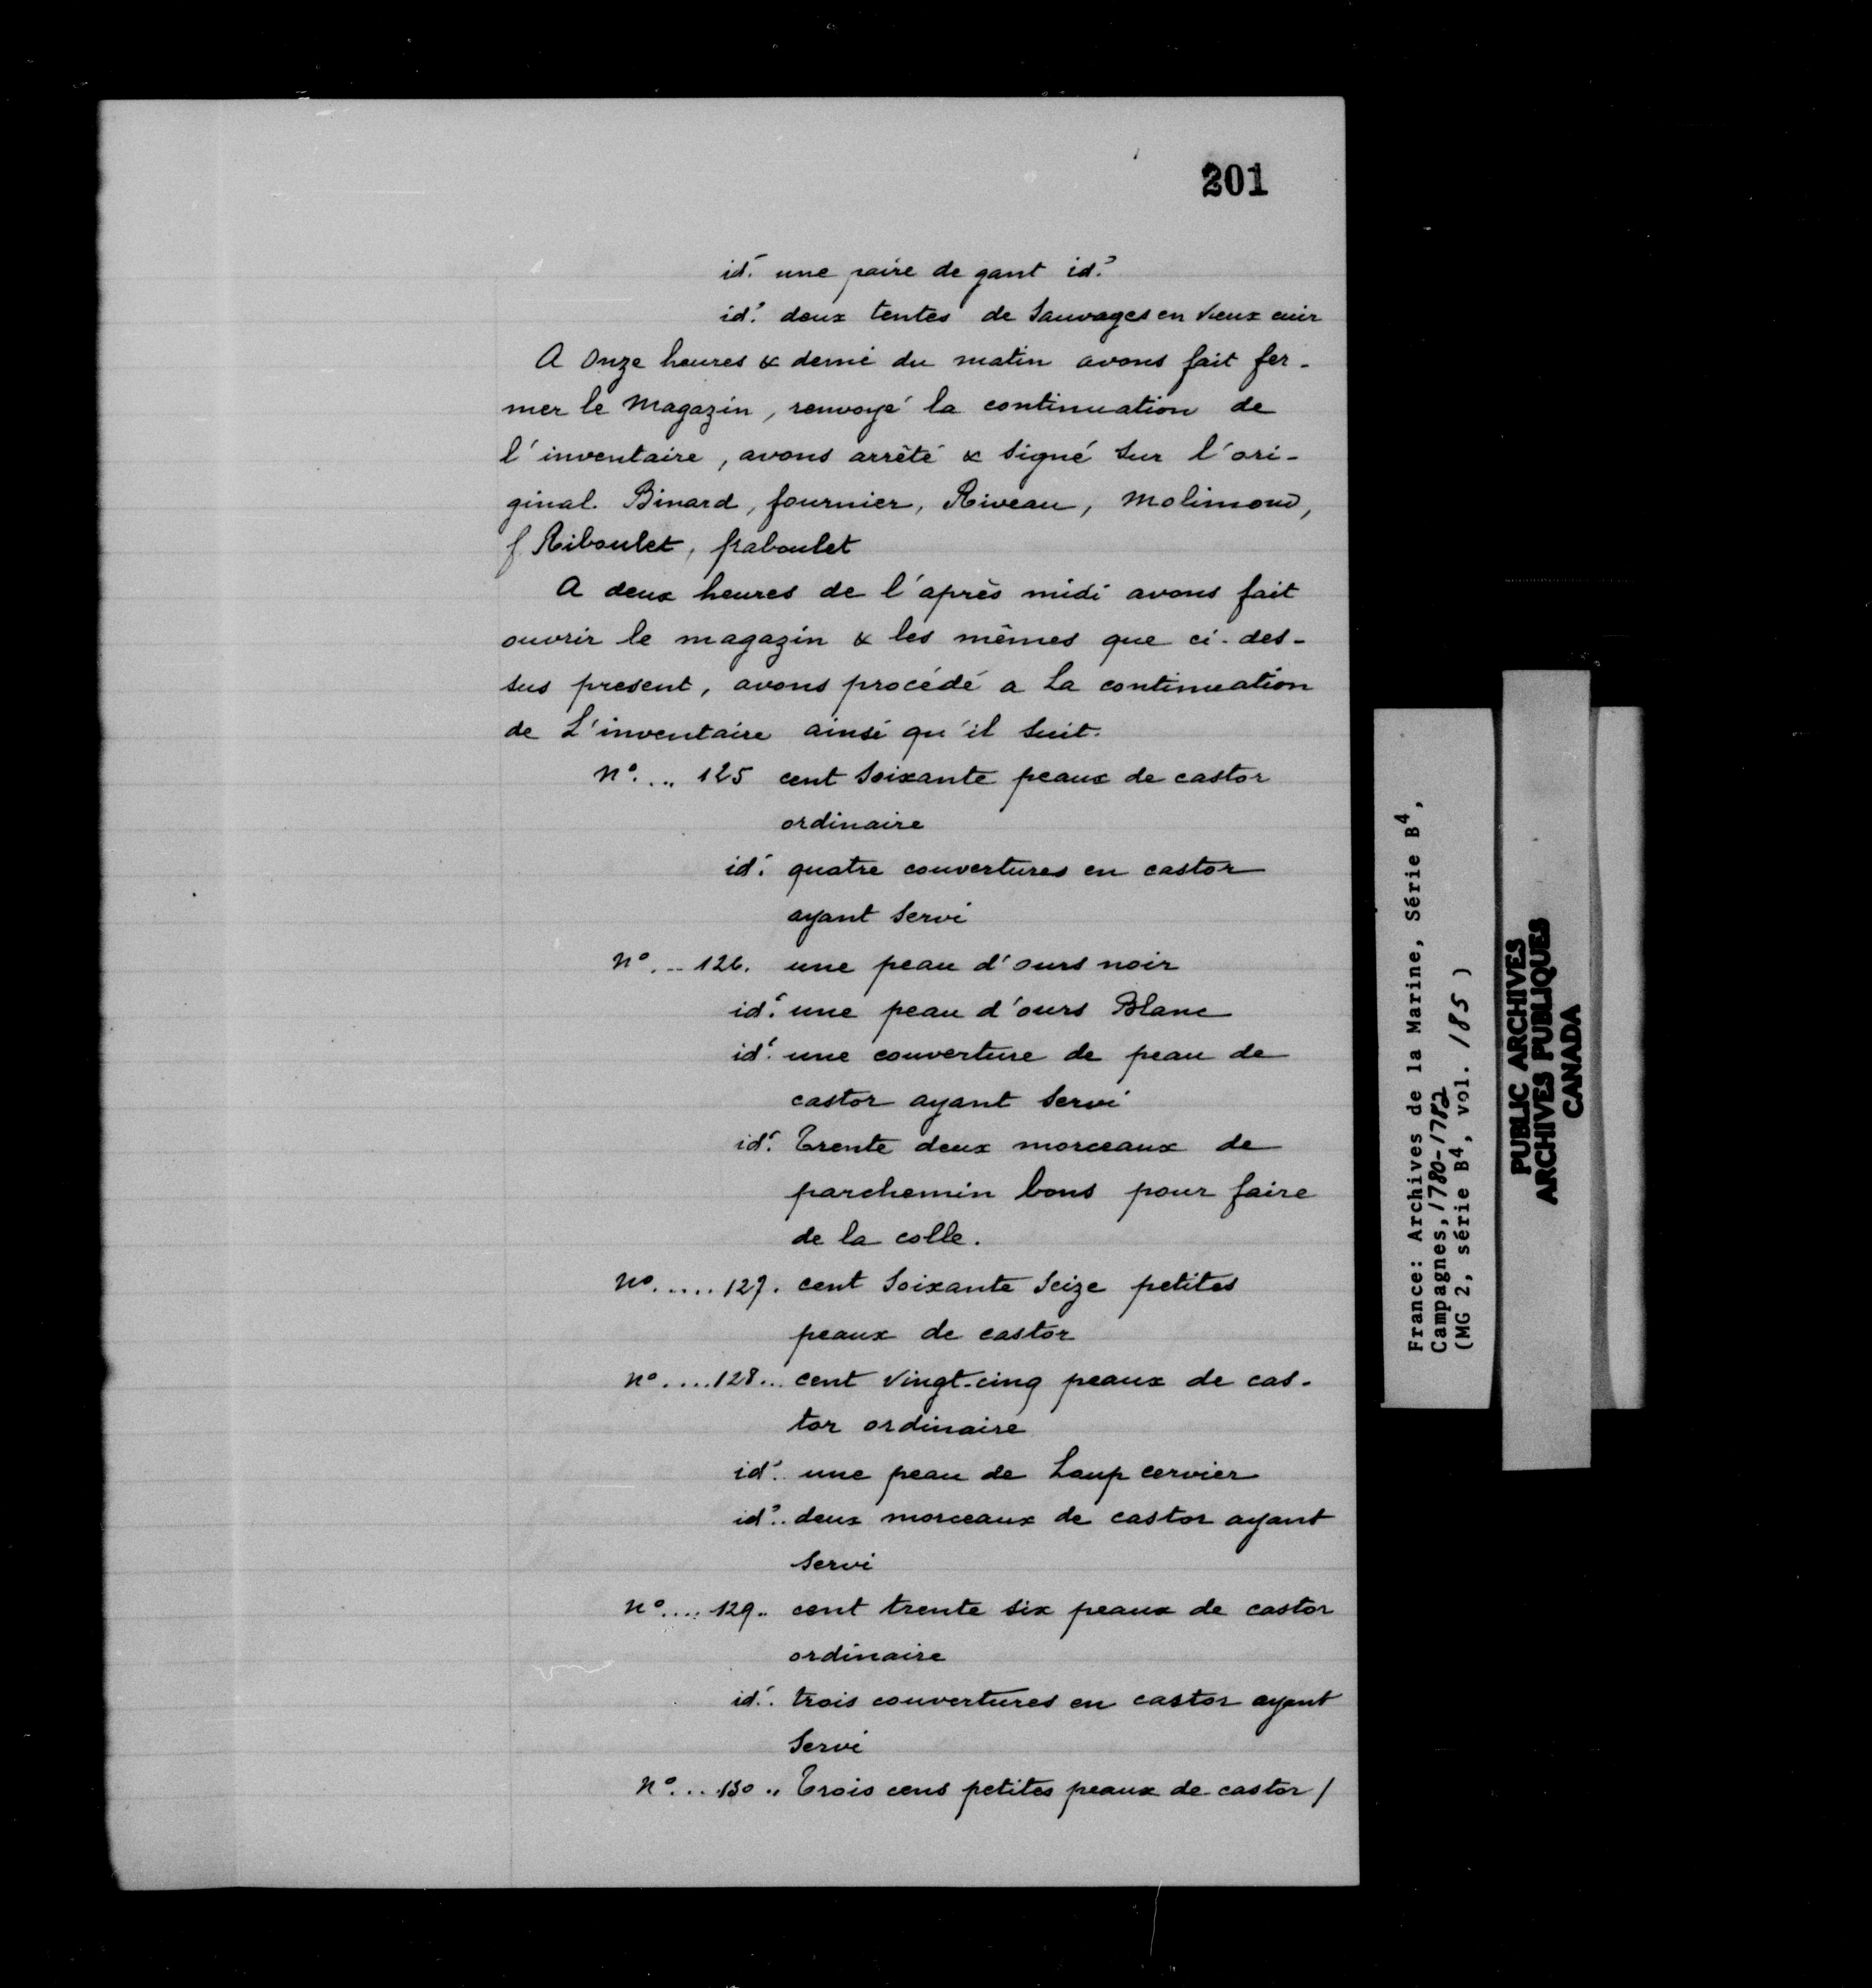 201
id. une paire de gant id.
id. deux tentes de Sauvages en vieux cuir
A onze heures & demi du matin avons fait fer-
mer le Magazin, renvoyé la continuation de
l'inventaire, avons arrêté & signé sur l'ori-
ginal. Binard, fournier, Riveau, Molimond,
f Riboulet, fraboulet
A deux heures de l'après midi avons fait
ouvrir le magazin & les mêmes que ci-des-
sus present, avons procédé a La continuation
de L'inventaire ainsi qu'il suit.
N° ... 125 cent soixante peaux de castor
ordinaire
id. quatre couvertures en castor
ayant servi
N° ... 126. une peau d'ours noir
id. une peau d'ours Blanc
id. une couverture de peau de
castor ayant servi
id. Trente deux morceaux de
parchemin bons pour faire
de la colle.
N° ..... 127. cent Soixante Seize petites
peaux de castor
N° .... 128... cent vingt-cinq peaux de cas-
tor ordinaire
id. une peau de Loup cervier
id. deux morceaux de castor ayant
servi
N° .... 129.. cent trente six peaux de castor
ordinaire
id. trois couvertures en castor ayant
Servi
N° ... 130 .. Trois cens petites peaux de castor /
France: Archives de la Marine, Série B4,
Campagnes, 1780-1782
(MG 2, série B4, vol. 185)
PUBLIC ARCHIVES
ARCHIVES PUBLIQUES
CANADA